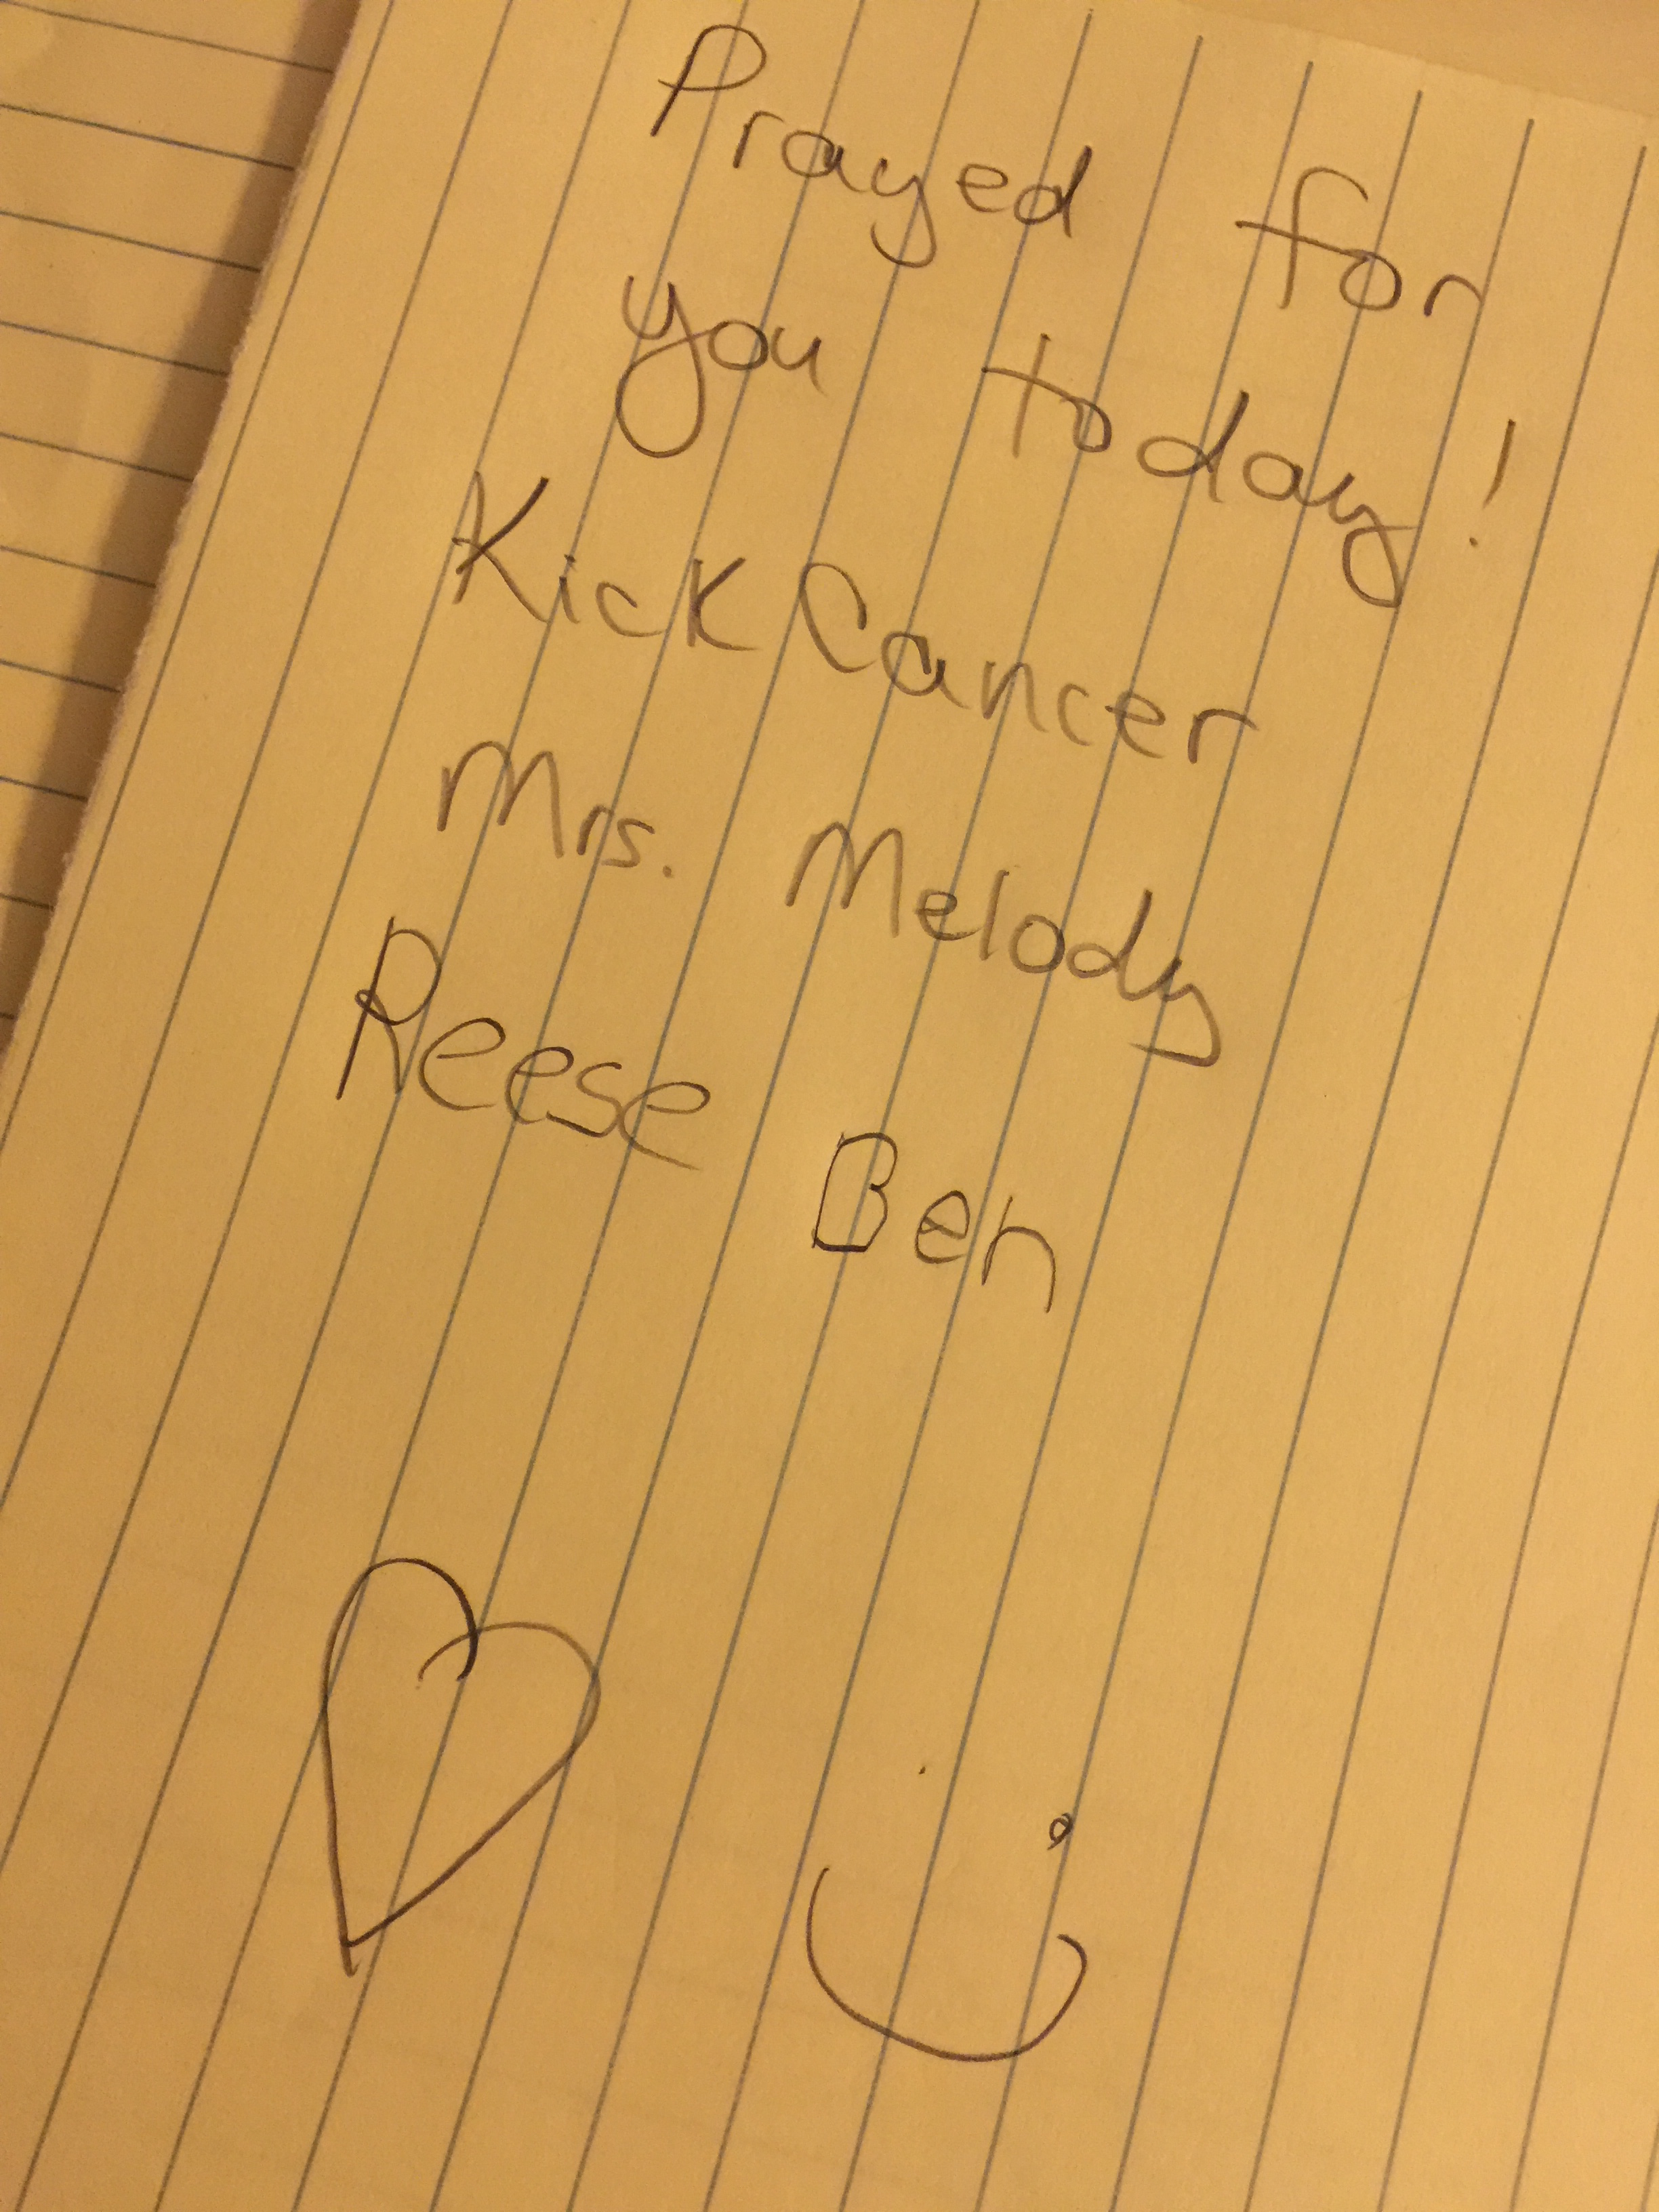 Prayed for
you today!
Kick Cancer
Mrs. Melody
Reese Ben